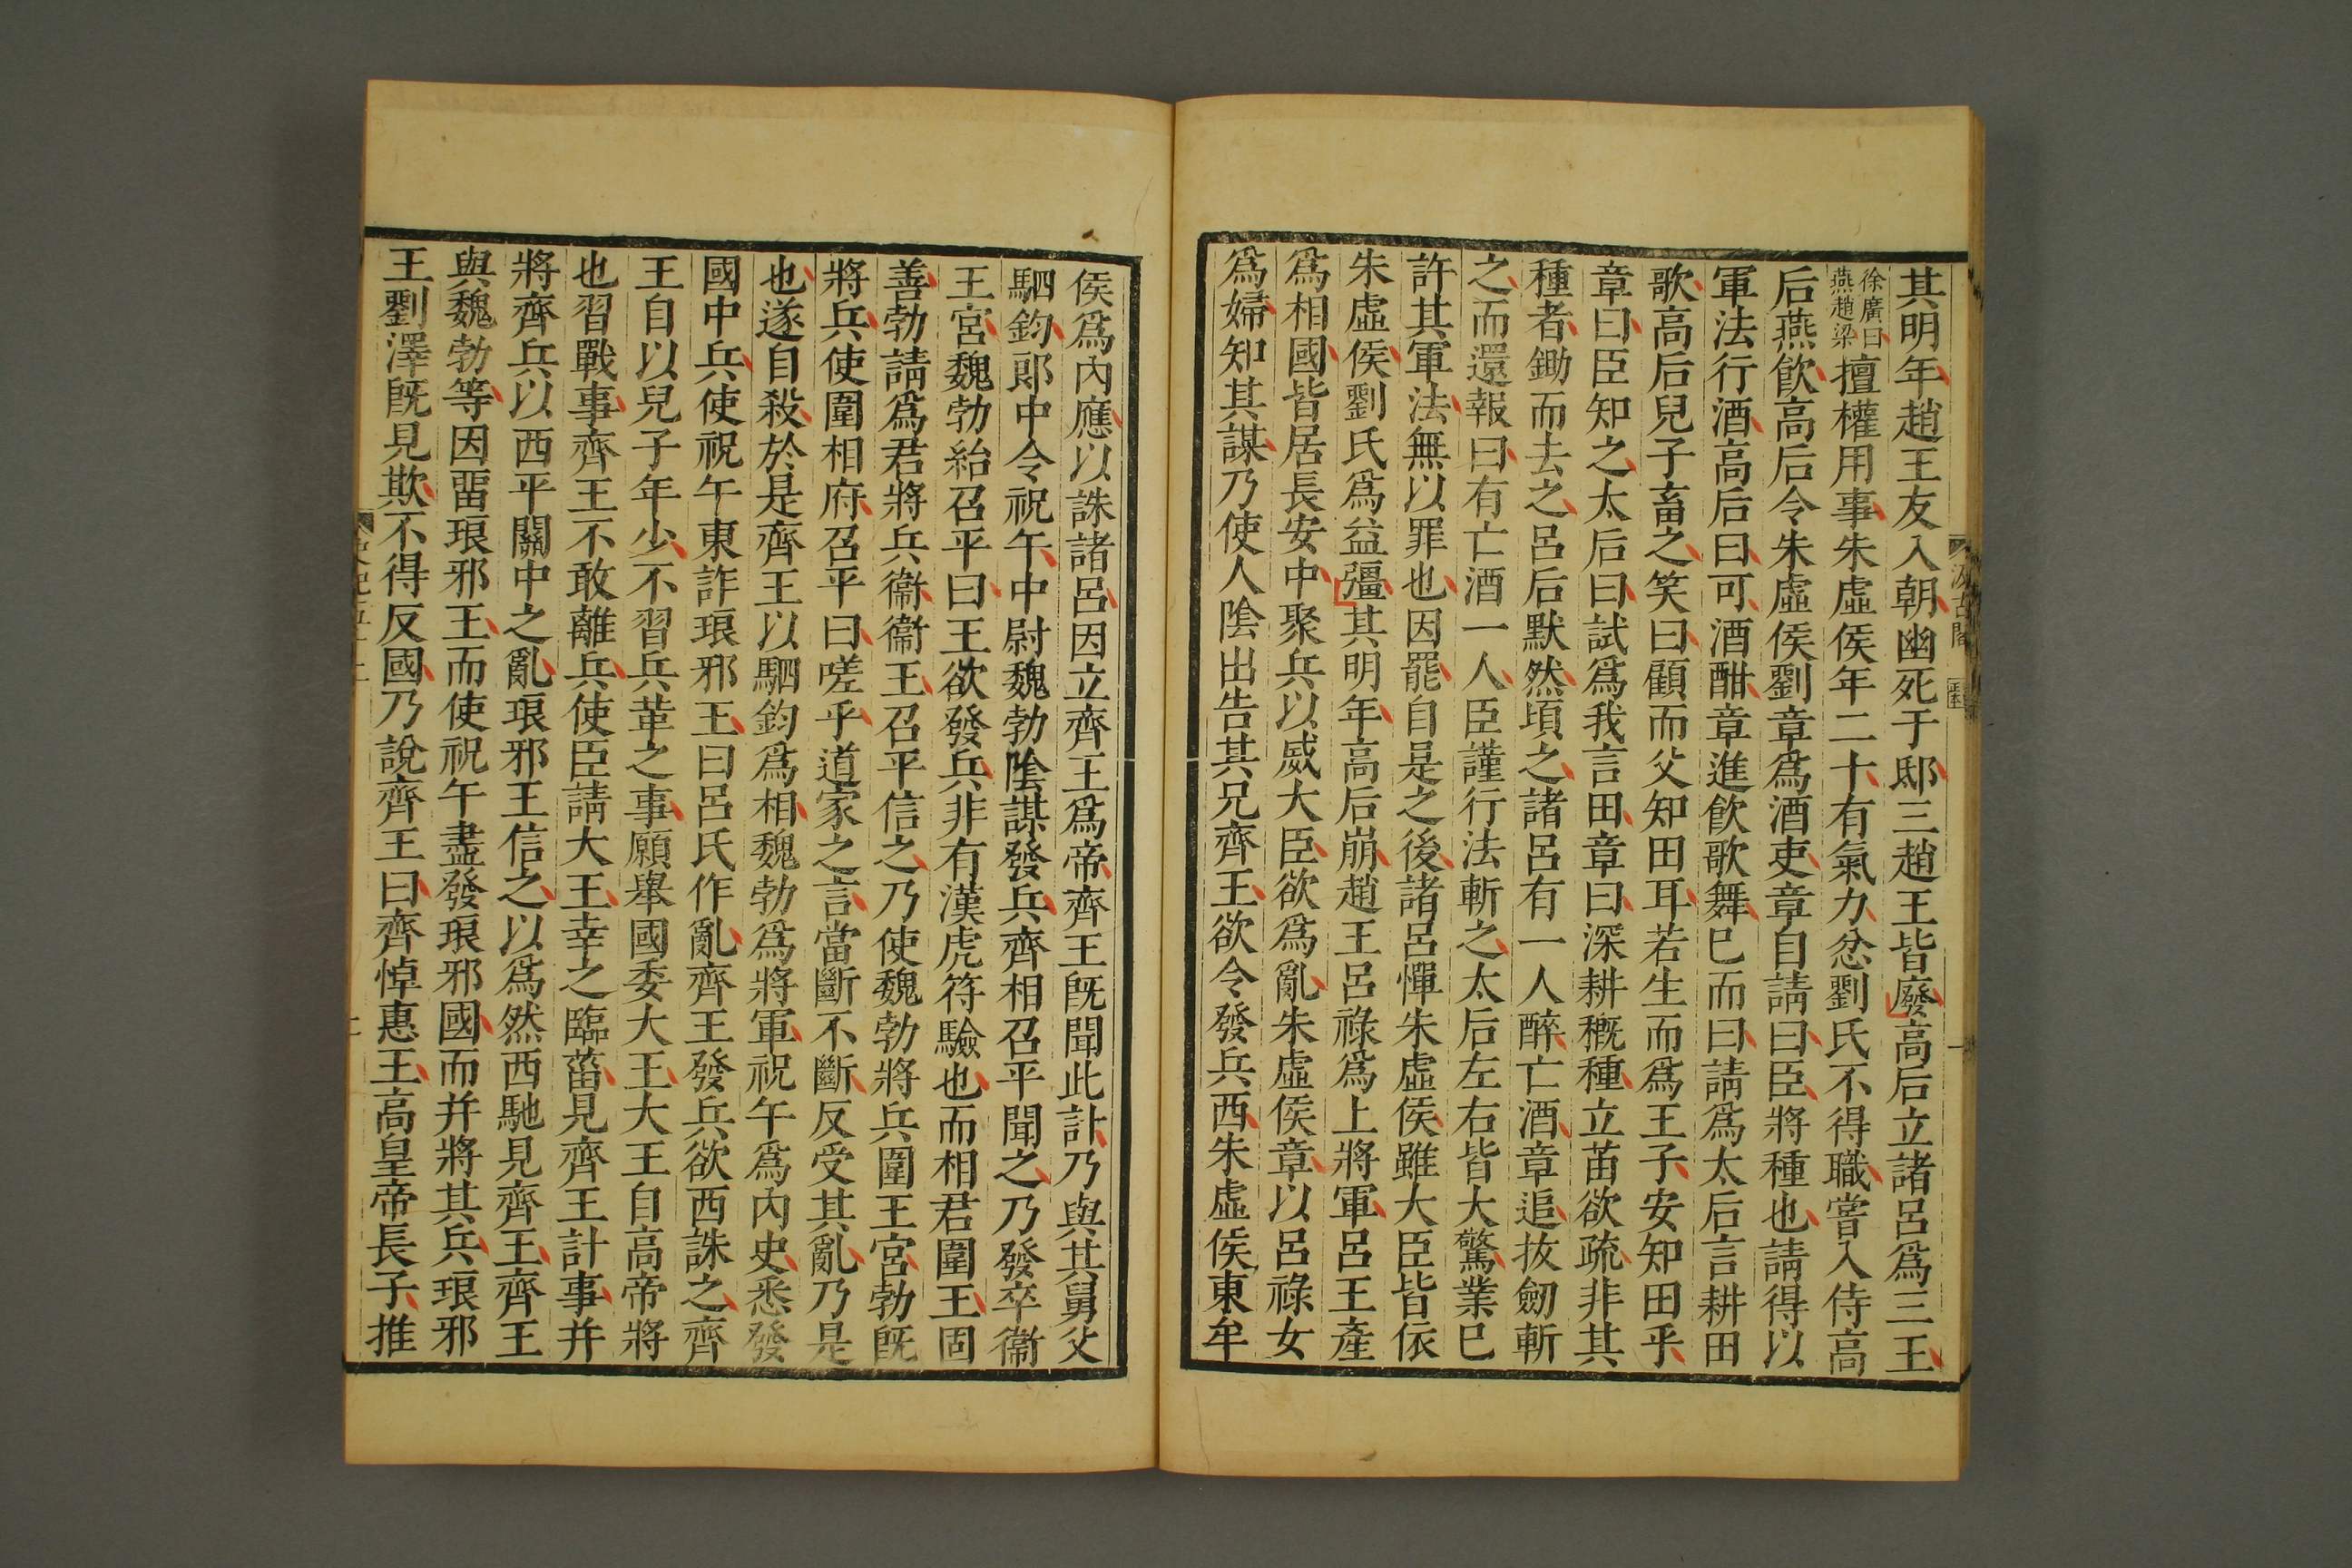 其明年趙王友入朝幽死于邸三趙王皆廢高后立諸呂爲三王
徐廣曰
燕趙梁
擅權用事朱虛侯年二十有氣力忿劉氏不得職嘗入侍高
后燕飮高后令朱虛侯劉章爲酒吏章自請曰臣將種也請得以
軍法行酒高后曰可酒酣章進飮歌舞已而曰請爲太后言耕田
歌高后兒子畜之笑曰顧而父知田耳若生而爲王子安知田乎
章曰臣知之太后曰試爲我言田章曰深耕穊種立苗欲疏非其
種者鋤而去之呂后默然頃之諸呂有一人醉亡酒章追拔劒斬
之而還報曰有亡酒一人臣謹行法斬之太后左右皆大驚業已
許其軍法無以罪也因罷自是之後諸呂憚朱虛侯雖大臣皆依
朱虛侯劉氏爲益彊其明年高后崩趙王呂祿爲上將軍呂王產
爲相國皆居長安中聚兵以威大臣欲爲亂朱虛侯章以呂祿女
爲婦知其謀乃使人陰出告其兄齊王欲令發兵西朱虛侯東牟
汲古閣
侯爲內應以誅諸呂因立齊王爲帝齊王旣聞此計乃與其舅父
駟鈞郞中令祝午中尉魏勃陰謀發兵齊相召平聞之乃發卒衞
王宮魏勃紿召平曰王欲發兵非有漢虎符驗也而相君圍王固
善勃請爲君將兵衞衞王召平信之乃使魏勃將兵圍王宮勃旣
將兵使圍相府召平曰嗟乎道家之言當斷不斷反受其亂乃是
也遂自殺於是齊王以駟鈞爲相魏勃爲將軍祝午爲內史悉發
國中兵使祝午東詐琅邪王曰呂氏作亂齊王發兵欲西誅之齊
王自以兒子年少不習兵革之事願舉國委大王大王自高帝將
也習戰事齊王不敢離兵使臣請大王幸之臨菑見齊王計事幷
將齊兵以西平關中之亂琅邪王信之以爲然西馳見齊王齊王
與魏勃等因畱琅邪王而使祝午盡發琅邪國而幷將其兵琅邪
王劉澤旣見欺不得反國乃說齊王曰齊悼惠王高皇帝長子推